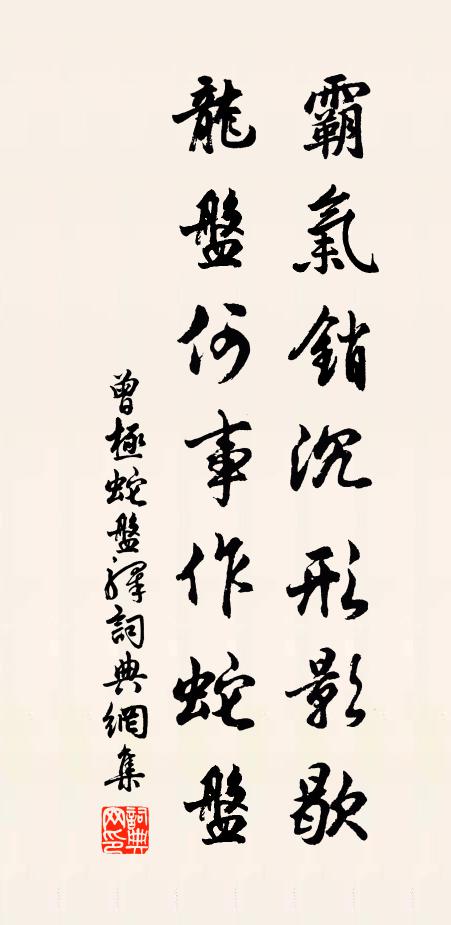 霸氣銷沉形影歇
龍盤何事作蛇盤
曾極蛇盤驛詞典網集
詞典網印